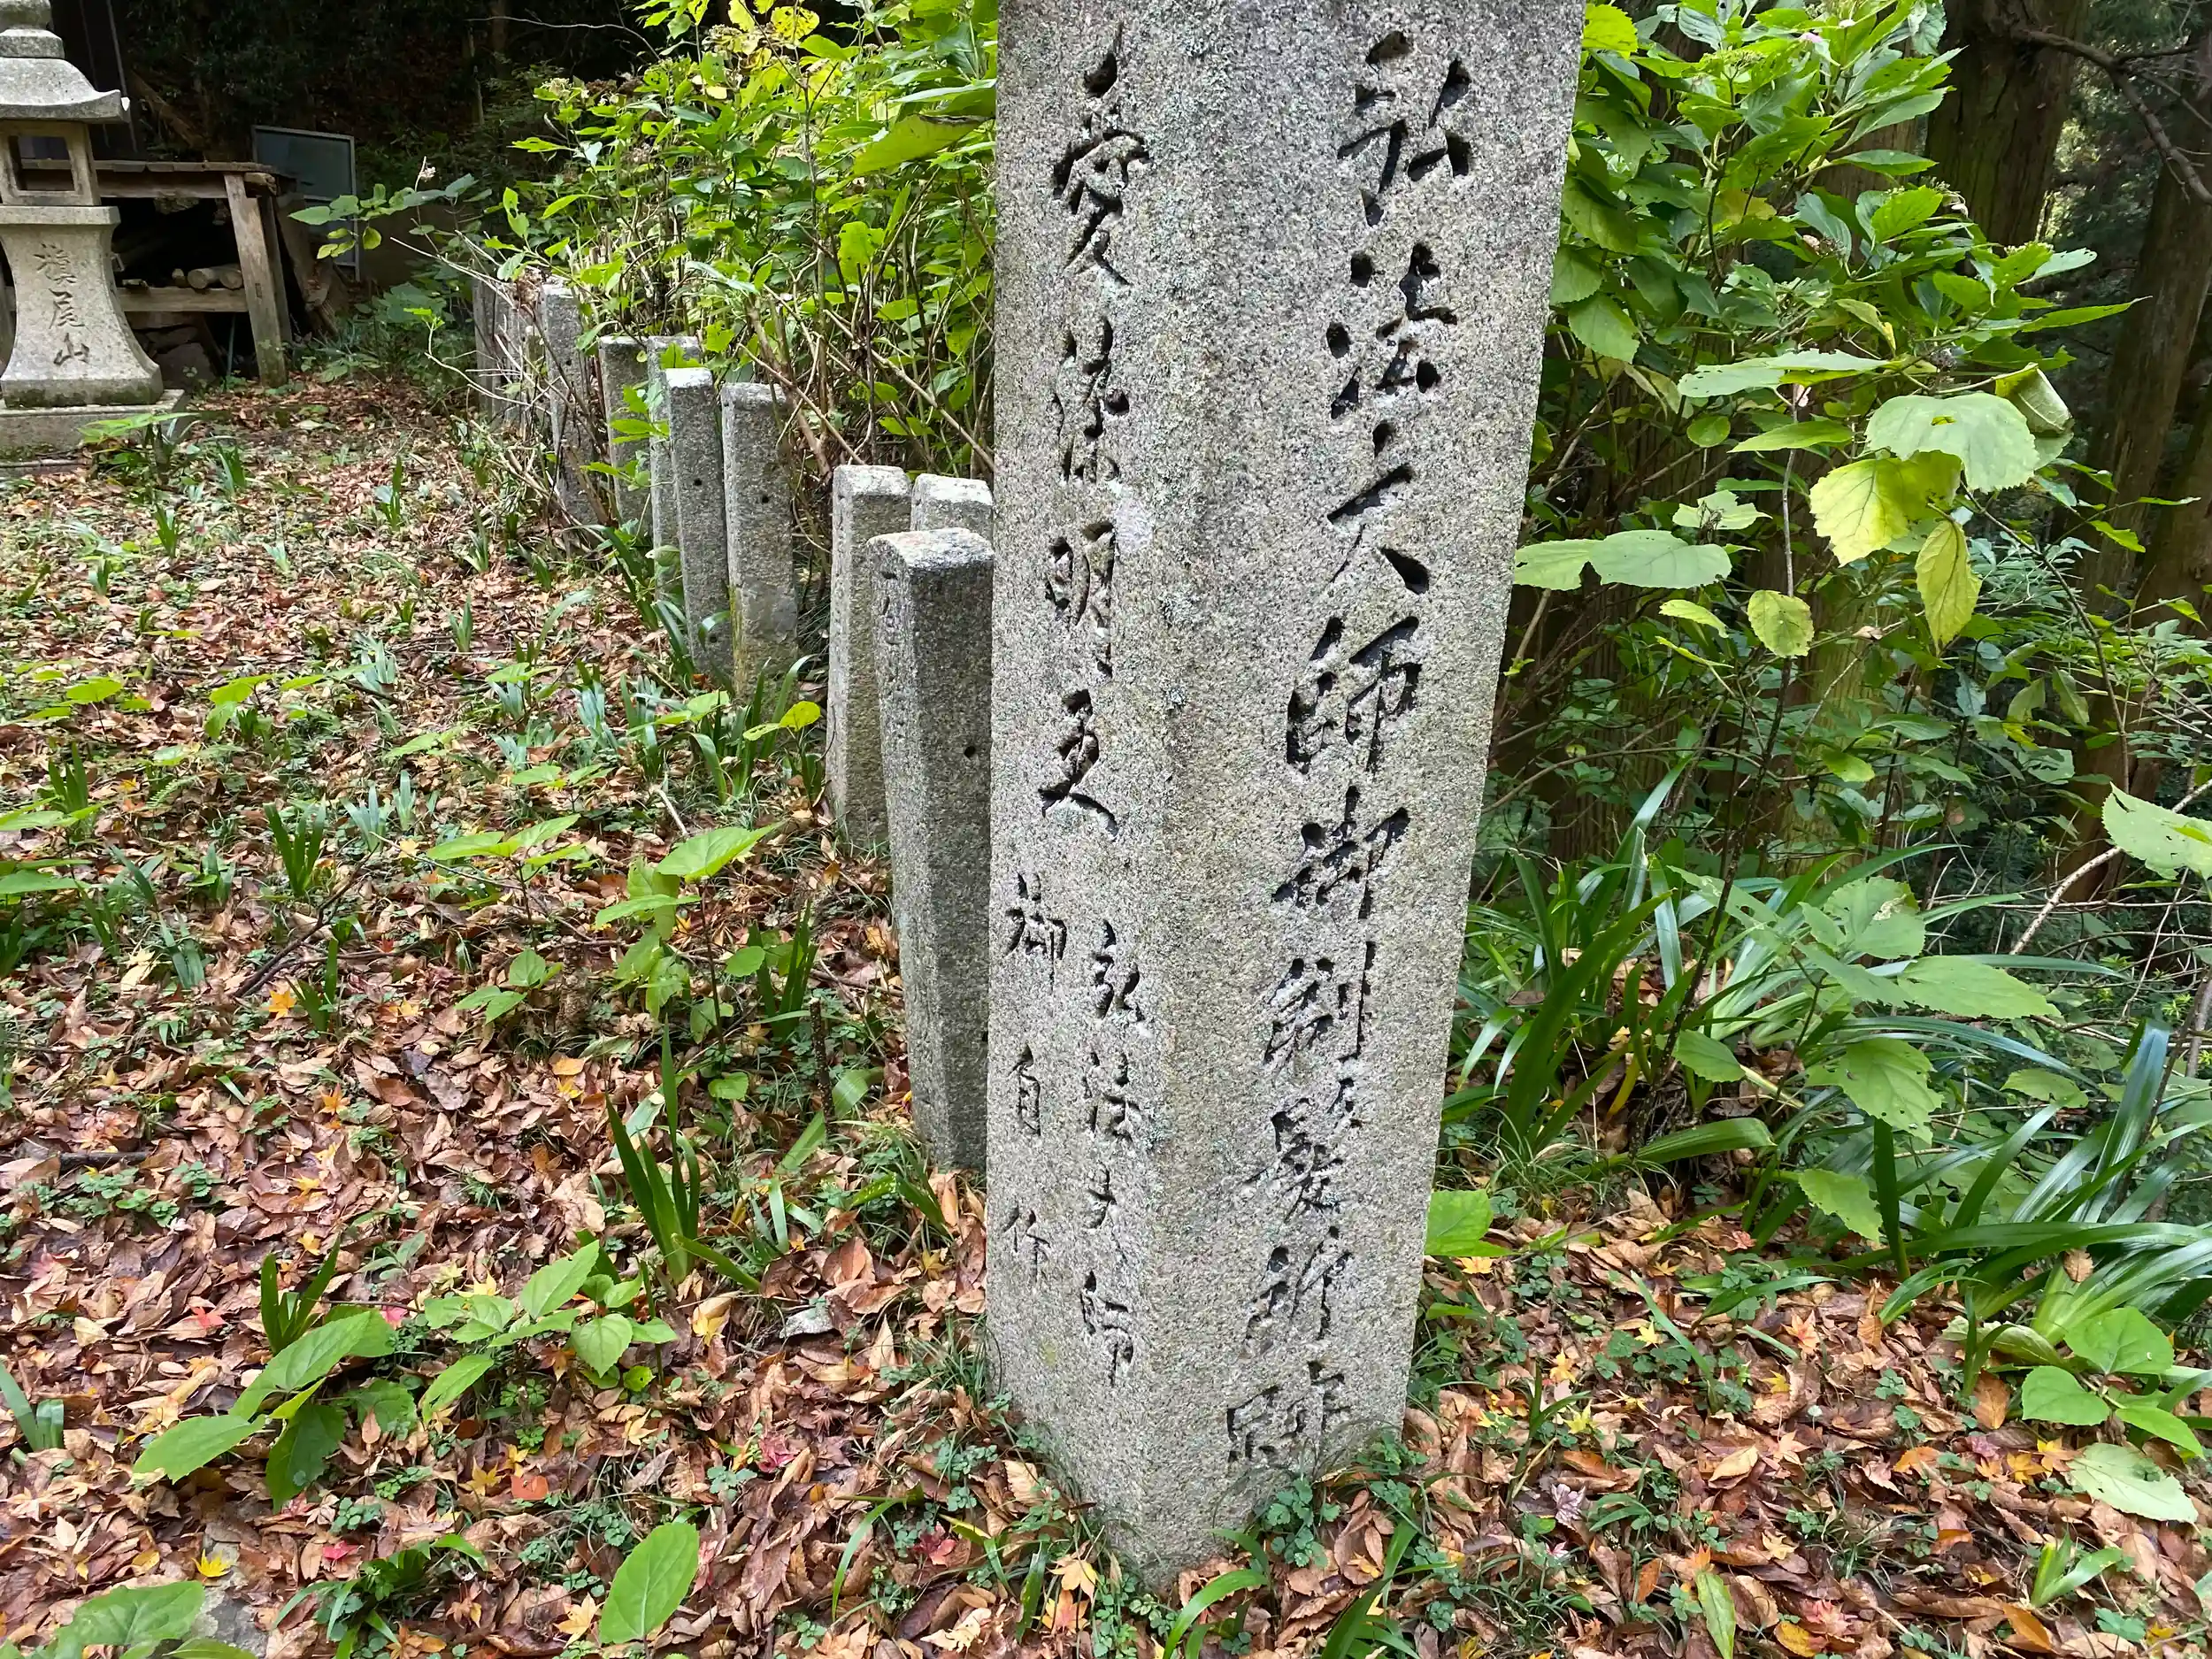 弘法大師御剃髪所跡
愛染明王
弘法大師
御自作
槇尾山